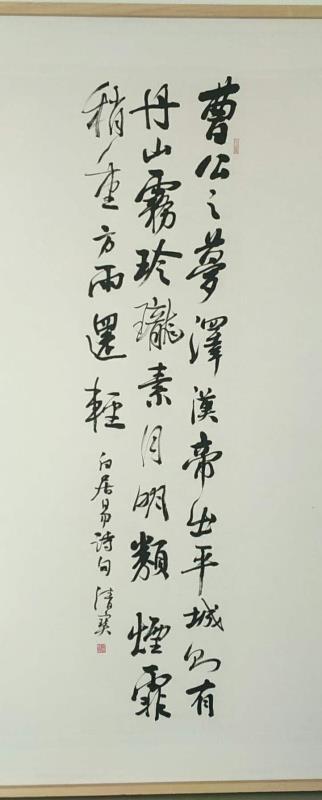 曹公之夢澤漢帝出平城則有
丹山霧玲瓏素月明類煙霏
稍重方雨還輕
白居易詩句清寞